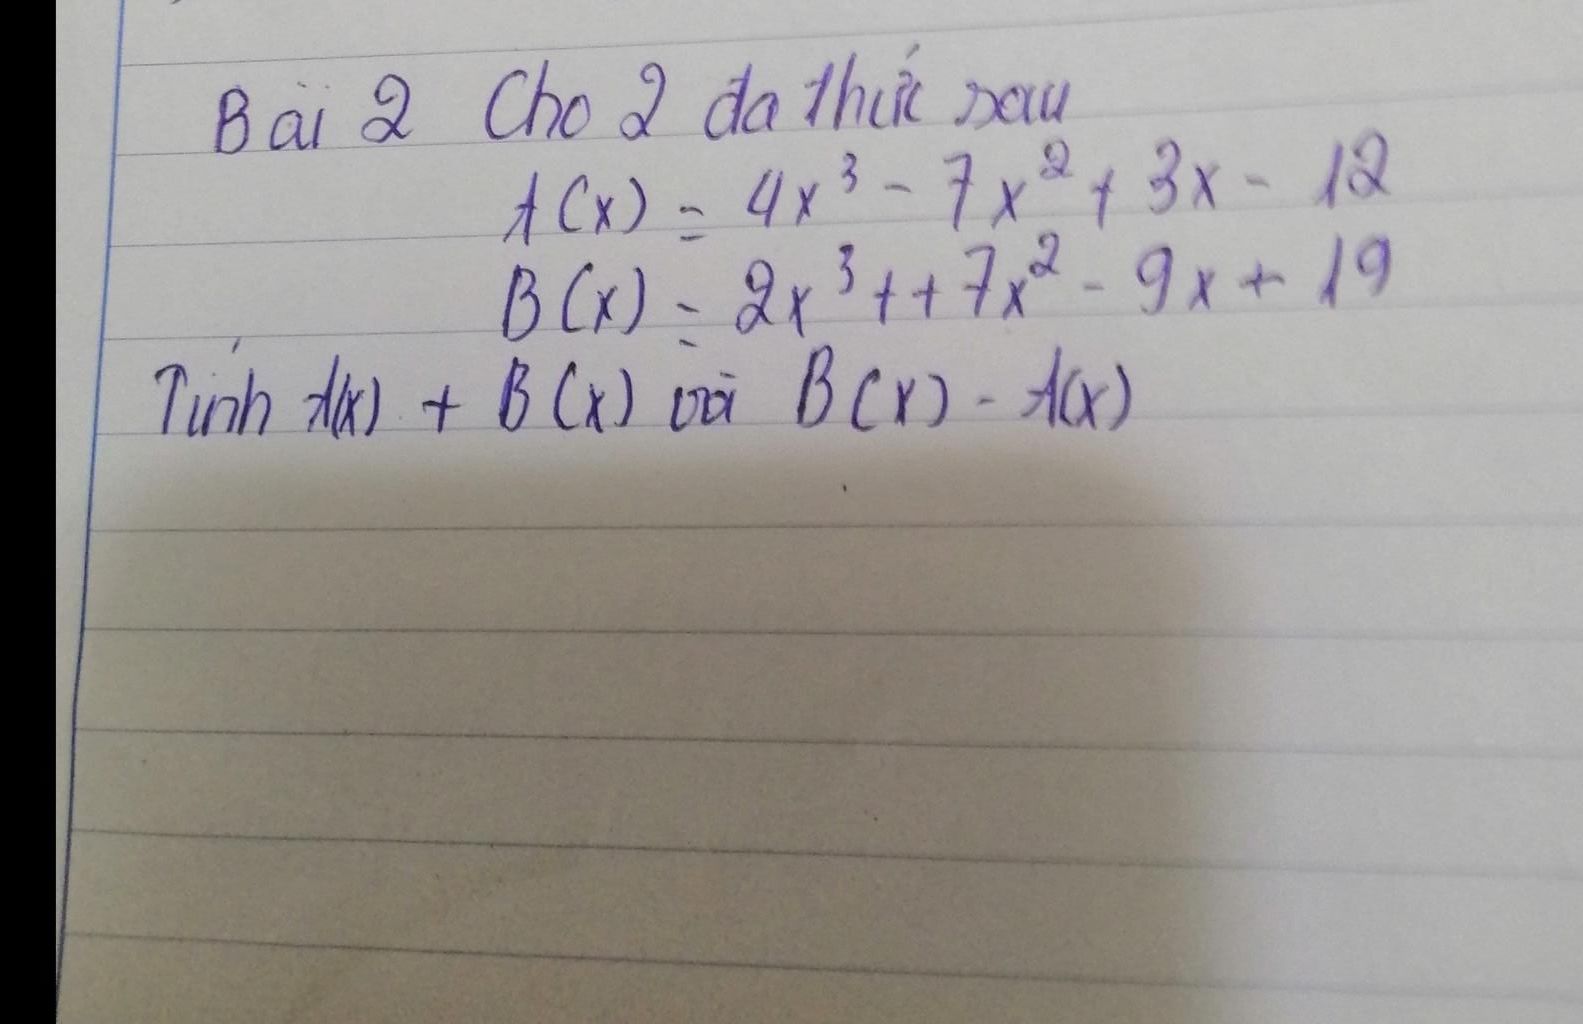 Bài 2 Cho 2 đa thức sau
A(x) = 4x³ - 7x² + 3x - 12
B(x) = 2x³ + + 7x² - 9x + 19
Tính A(x) + B(x) và B(x) - A(x)